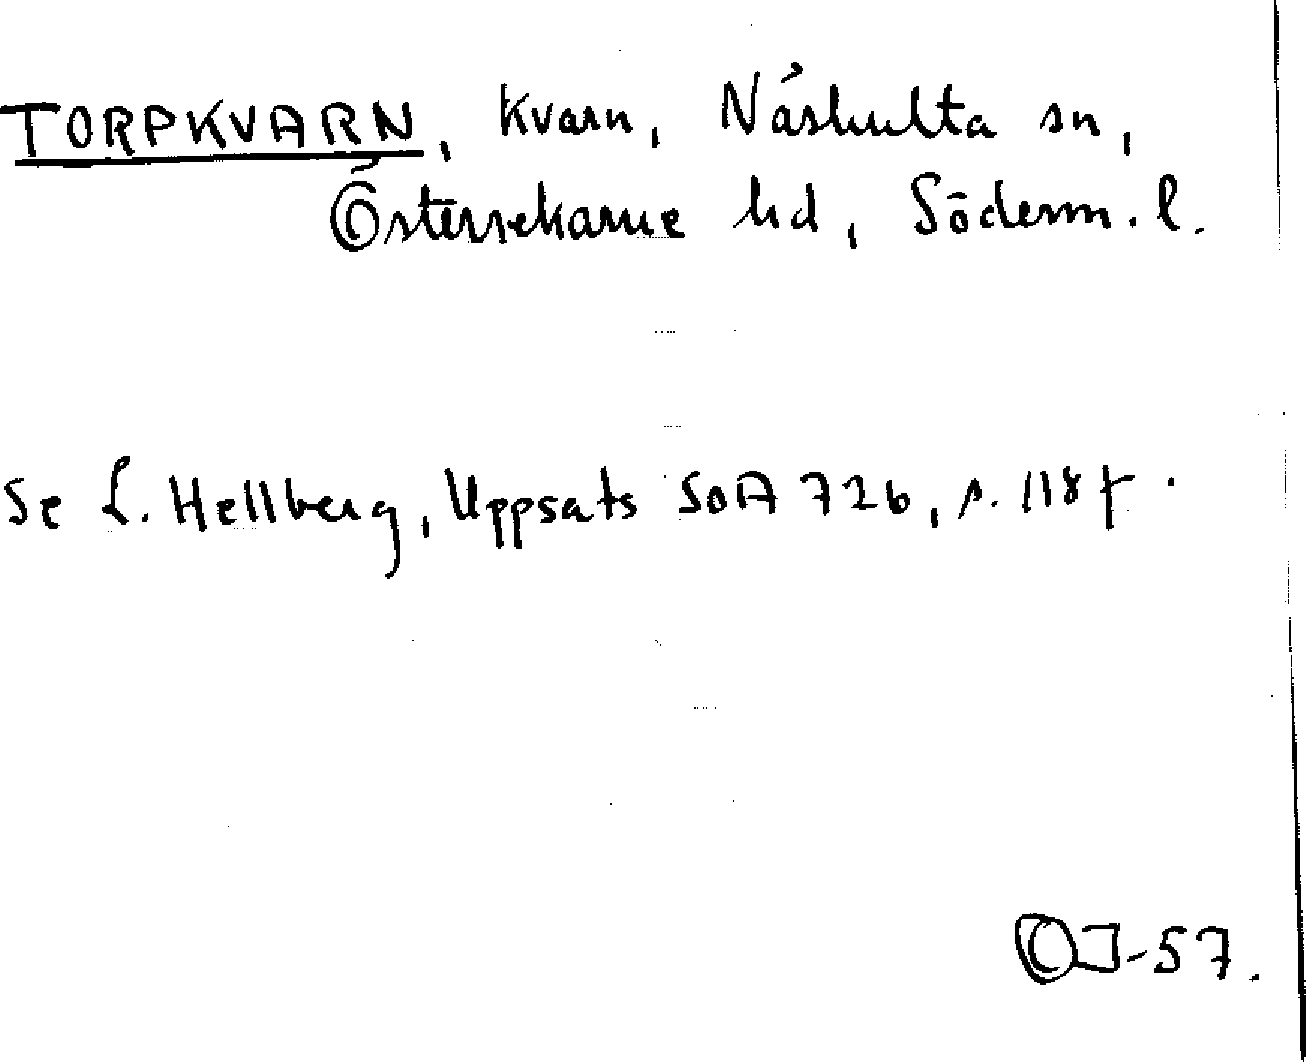 TORPKVARN, kvarn, Näshulta sn,
Österrekarne hd, Söderm. l.
Se L. Hellberg, Uppsats SOA 726, s. 118 f.
OJ-57.